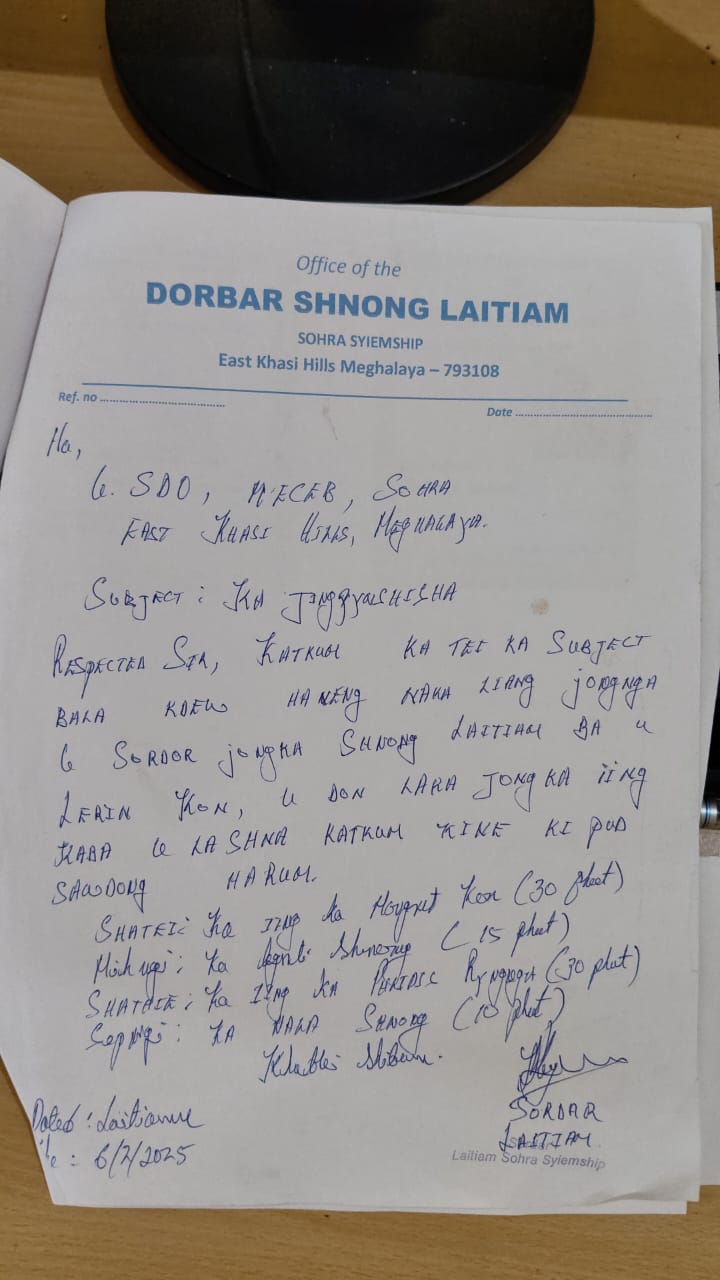 Office of the
DORBAR SHNONG LAITIAM
SOHRA SYIEMSHIP
East Khasi Hills Meghalaya – 793108
Ref. no ........................................
Date ........................................
Ha,
U. SDO, M'ECEB, SOHRA
EAST KHASI HILLS, MEGHALAYA.
SUBJECT : KA
RESPECTED SIR, KATKUM KA TEI KA SUBJECT
BALA KDEW HANENG NAKA LIANG JONGNGA
U SORDOR JONGKA SHNONG LAITIAM BA U
LERIN KON, U DON LAKA JONGKA IING
KABA U LA SHNA KATKUM KINE KI PUD
SAWDONG HARUM.
SHATEI: Ka IING ka Kor (30 phut)
Mihngi: Ka (15 phut)
SHATHIE: Ka IING KA (30 phut)
Sepngi: KA NALA SHNONG (10 phut)
Khublei Shibun.
SORDAR
LAITIAM
Laitiam Sohra Syiemship
Dated:
: 6/2/2025